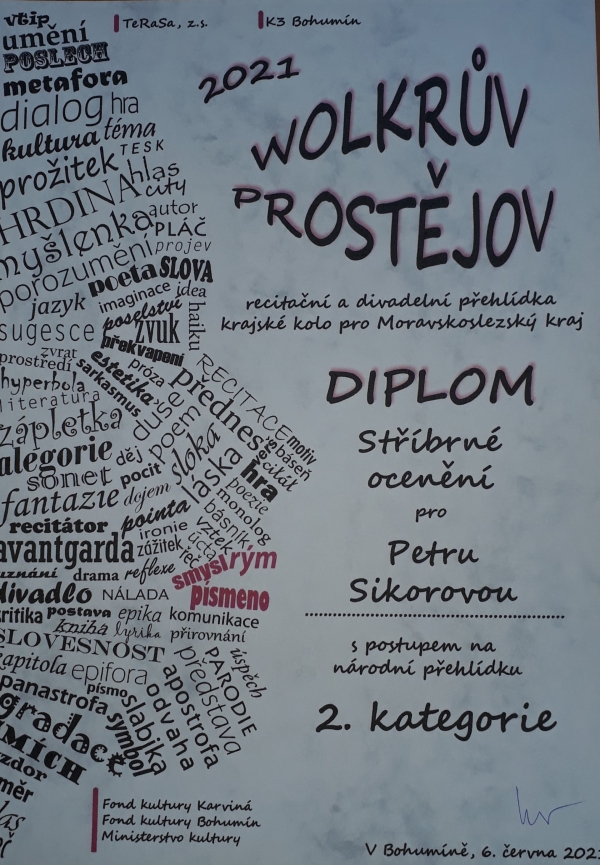 TeRaSa, z.s.
K3 Bohumín
2021
WOLKRŮV
PROSTĚJOV
recitační a divadelní přehlídka
krajské kolo pro Moravskoslezský kraj
DIPLOM
Stříbrné
ocenění
pro
Petru
Sikorovou
s postupem na
národní přehlídku
2. kategorie
V Bohumíně, 6. června 202
Fond kultury Karviná
Fond kultury Bohumín
Ministerstvo kultury
vtip
umění
POSLECH
metafora
dialog hra
kultura téma
TESK
prožitek hlas
city
HRDINA
autor
myšlenka PLÁČ
projev
porozumění
poeta SLOVA
jazyk imaginace idea
poselství haiku
sugesce zvuk
zvrat překvapení
prostředí estetika próza
hyperbola sarkasmus
literatura
RECITACE
přednes
motiv
duše
báseň
zápletka poem sloka
alegorie děj
láska hra
sonet pocit
poezie
fantazie dojem
monolog
recitátor pointa básník
ironie vztek
avantgarda zážitek úcta
řeč
uznání drama reflexe
smysl rým
divadlo NÁLADA písmeno
kritika postava epika komunikace
kniha lyrika přirovnání
SLOVESNOST
kapitola epifora
PARODIE úspěch
představa
panastrofa písmo
apostrofa
slabika odvaha
gradace symbol
SMÍCH
vzdor